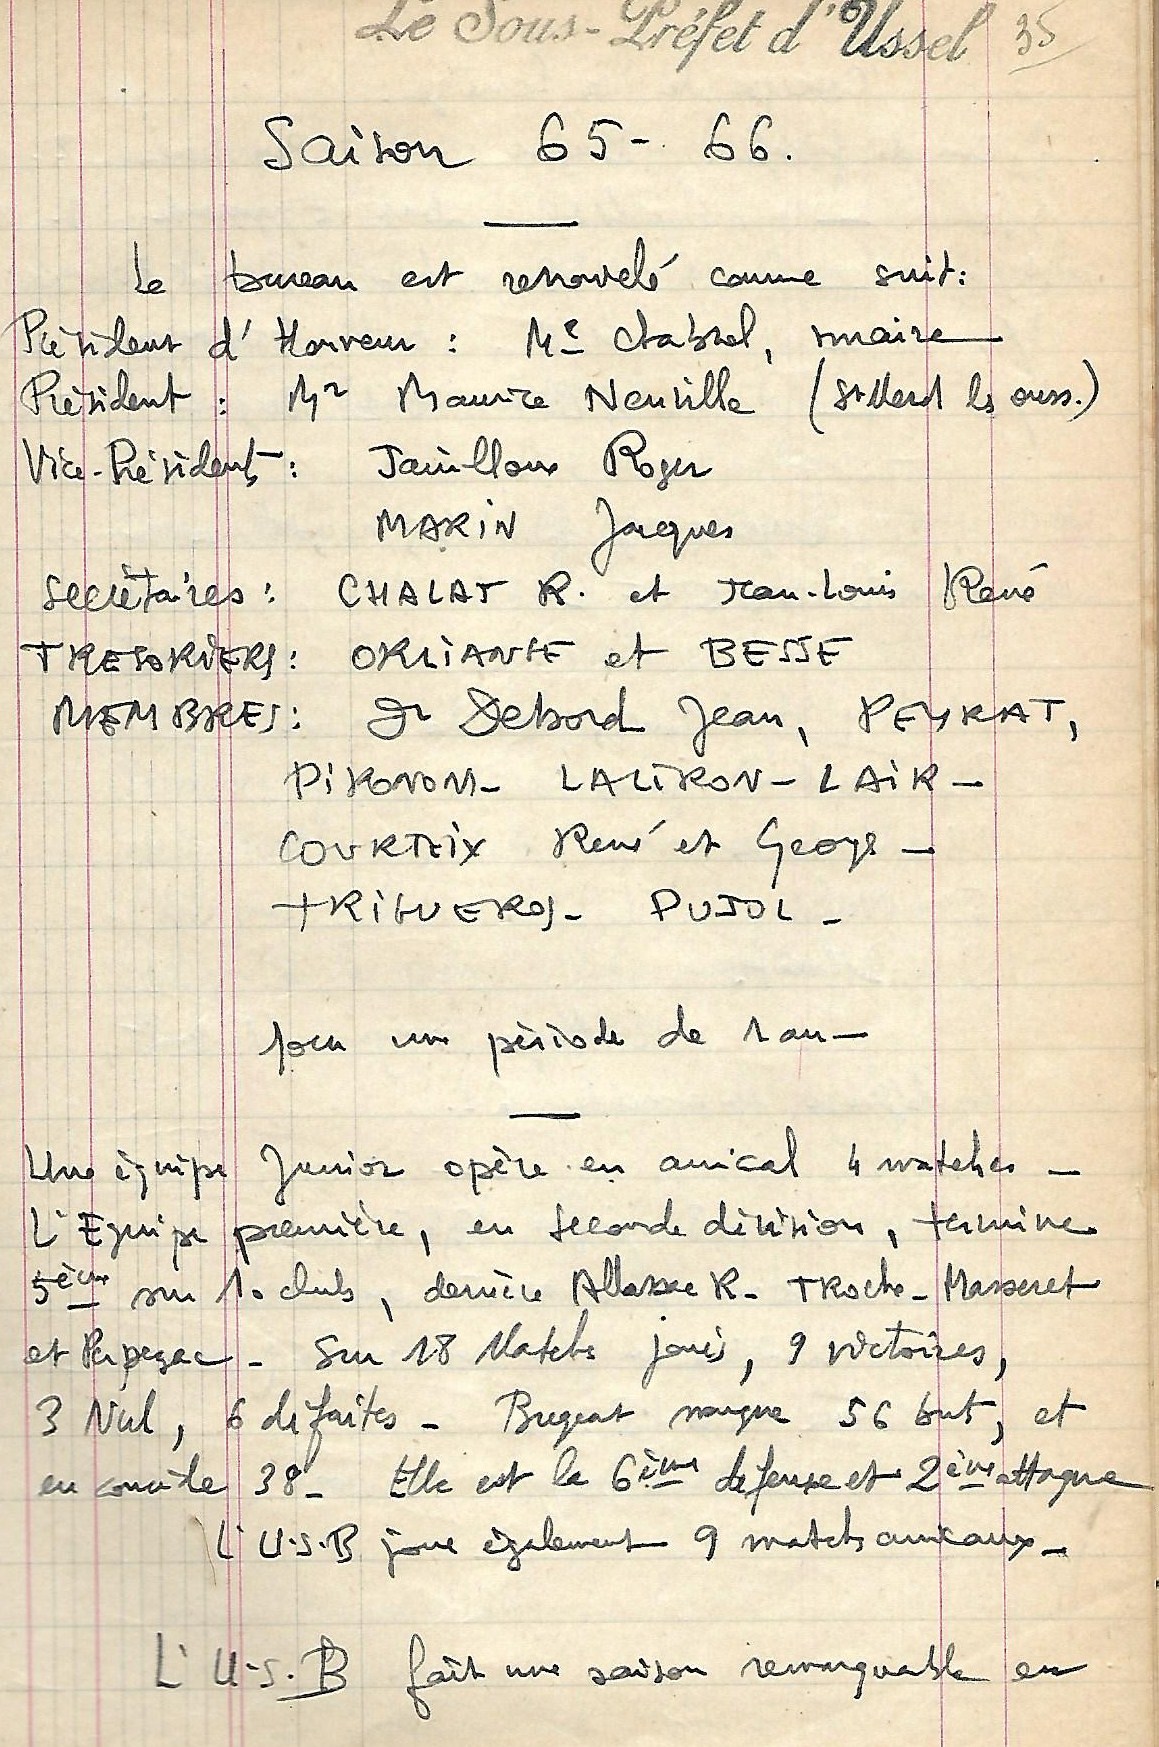 Le Sous-Préfet d'Ussel 35
Saison 65-66.
Le bureau est renouvelé comme suit:
Président d'Honneur : Me Chabrol, maire
Président : Mr Maurice Neuville (St Merd les ouss.)
Vice-Présidents : Jouilloux Roger
MARIN Jacques
Secrétaires : CHALAT R. et Jean-Louis René
TRESORIERS : ORLIANGE et BESSE
MEMBRES : Dr Debord Jean, PEYRAT,
PIRONOM - LALIRON - LAIR -
COURTEIX René et George -
TRIGUEROS - PUJOL -
pour une période de 1 an -
Une équipe Junior opère en amical 4 matches -
L'Equipe première, en seconde division, termine
5ème sur 10 clubs, derrière Allassac R. - TRoche - Masseret
et Perpezac - Sur 18 Matchs joués, 9 victoires,
3 Nul, 6 défaites - Bugeat marque 56 but, et
en concède 38 - Elle est la 6ème défense et 2ème attaque
L'U.S.B joue également 9 matchs amicaux -
L'U.S.B fait une saison remarquable en